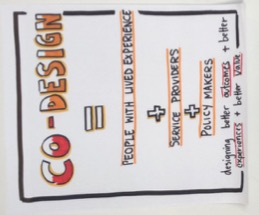 CO-DESIGN
=
PEOPLE WITH LIVED EXPERIENCE
+
SERVICE PROVIDERS
+
POLICY MAKERS
designing better outcomes + better
experiences + better value